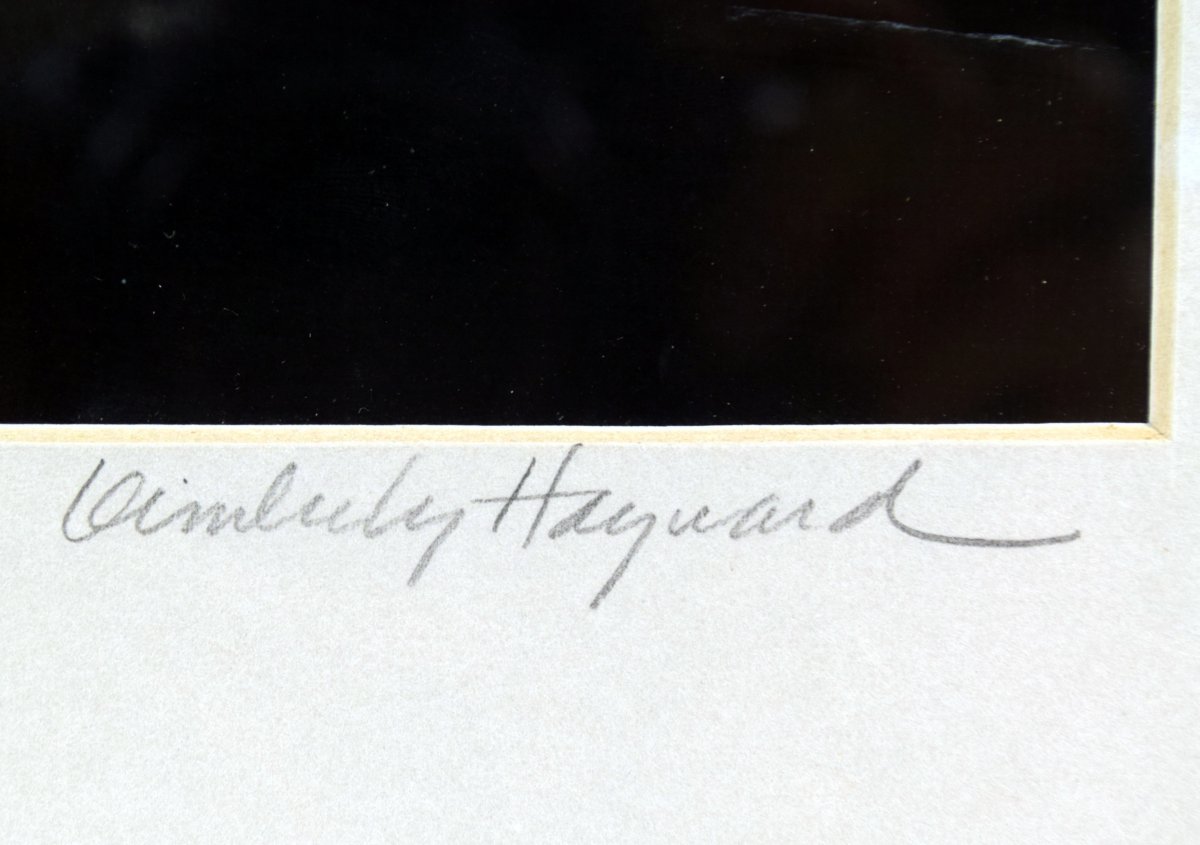 Kimberly Hayward